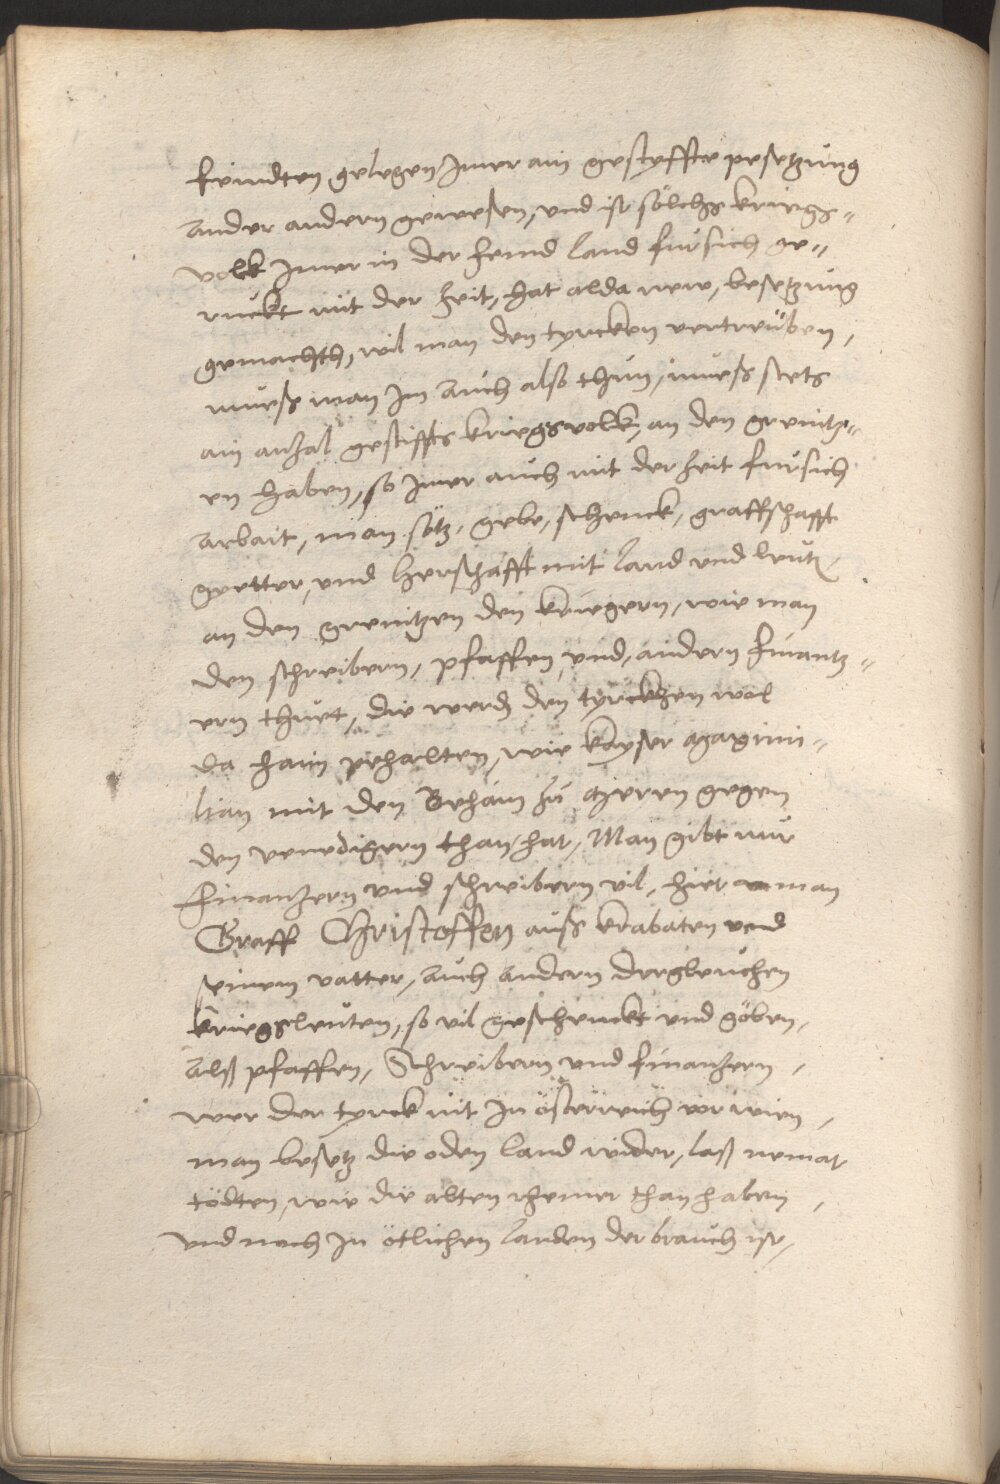 feindten gelegen Jmer ain gestyffte pesetzung
an der andern gewesen, und ist sölchs kriegs=
volk Jmer in der feind land fursich ge=
ruckt mit der zeit, hat alda new, besetzung
gemachth, wil man den tyrcken vertreiben,
muess man Jm auch also thun, muess stets
ain anzal gestiffts kriegsvolk, an den grenitz=
en haben, so Jmer auch mit der zeit fursich
arbait, man sötz, gebe, schenck, graffschafft
guetter, und herschafft mit land und leutz,
an den grenitzen den kriegern, wie man
den schreibern, pfaffen, und, andern finantz=
ern thuet, die werdn den tyrckhen wol
da haim pehalten, wie kayser Maximi=
lian mit den Behaim zu gegen
den venedigern than hat, Man gibt nur
finanzern und schreibern vil, hiet man
Graff Christoffen auss krabaten und
seinem vatter, auch andern dergleichen
kriegsleuten, so vil geschenckt und göben,
alss pfaffen, Schreibern und finanzern,
wer der tyrck nit Jn österreich vor wien,
man besetz die öden land wider, lass nemat
tödten, wie die alten rhemer than haben,
und noch Jn ötlichen landen der brauch ist,